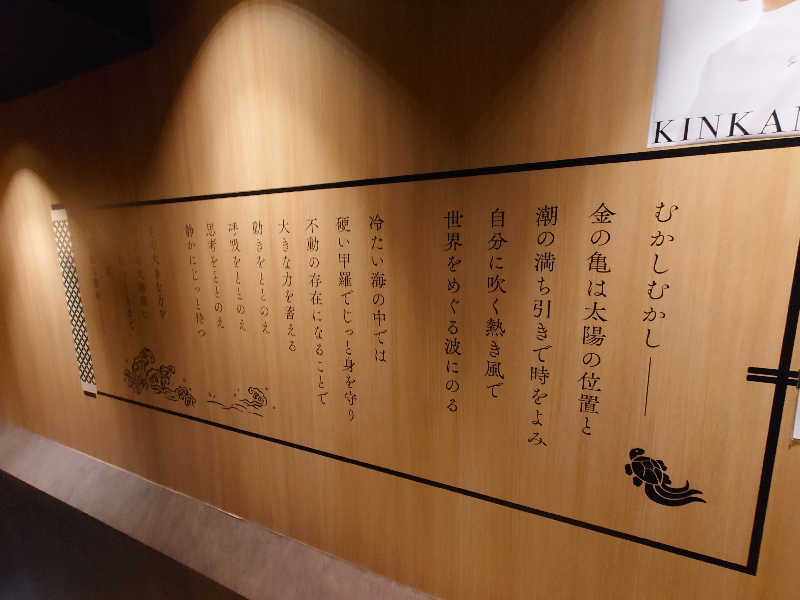 むかしむかし――
金の亀は太陽の位置と
潮の満ち引きで時をよみ
自分に吹く熱き風で
世界をめぐる波にのる
冷たい海の中では
硬い甲羅でじっと身を守り
不動の存在になることで
大きな力を蓄える
動きをととのえ
呼吸をととのえ
思考をととのえ
静かにじっと待つ
KINKAN